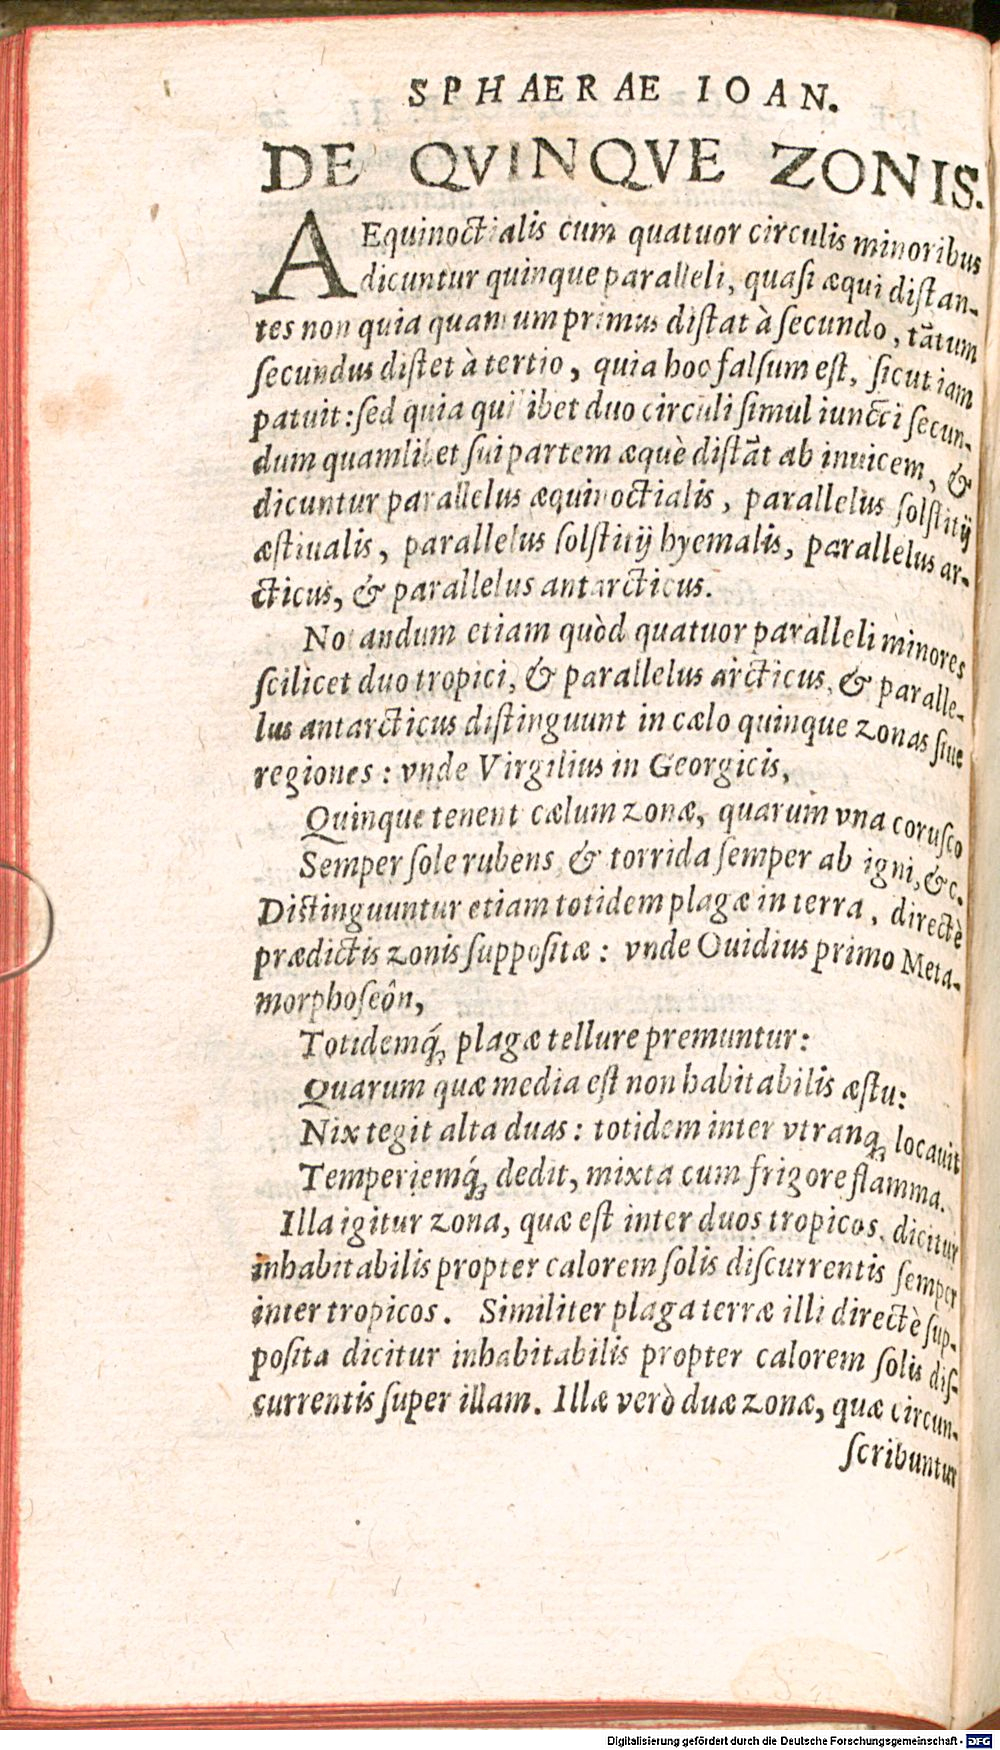 SPHAERAE IOAN.
DE QVINQVE ZONIS.
AEquinoctialis cum quatuor circulis minoribus
dicuntur quinque paralleli, quasi æqui distan-
tes non quia quantum primus distat à secundo, tātum
secundus distet à tertio, quia hoc falsum est, sicut iam
patuit: sed quia quilibet duo circuli simul iuncti secun-
dum quamlibet sui partem æquè distāt ab inuicem, &
dicuntur parallelus æquinoctialis, parallelus solstitij
æstiualis, parallelus solstitij hyemalis, parallelus ar-
cticus, & parallelus antarcticus.
Notandum etiam quòd quatuor paralleli minores
scilicet duo tropici, & parallelus arcticus, & paralle-
lus antarcticus distinguunt in cælo quinque zonas siue
regiones: vnde Virgilius in Georgicis,
Quinque tenent cælum zonæ, quarum vna corusco
Semper sole rubens & torrida semper ab igni, &c.
Distinguuntur etiam totidem plagæ in terra, directè
prædictis zonis suppositæ: vnde Ouidius primo Meta-
morphoseôn,
Totidemq́; plagæ tellure premuntur:
Quarum quæ media est non habitabilis æstu:
Nix tegit alta duas: totidem inter vtranq; locauit
Temperiemq́; dedit, mixta cum frigore flamma.
Illa igitur zona, quæ est inter duos tropicos, dicitur
inhabitabilis propter calorem solis discurrentis semper
inter tropicos. Similiter plaga terræ illi directè sup-
posita dicitur inhabitabilis propter calorem solis dis-
currentis super illam. Illæ verò duæ zonæ, quæ circun-
scribuntur
Digitalisierung gefördert durch die Deutsche Forschungsgemeinschaft - DFG